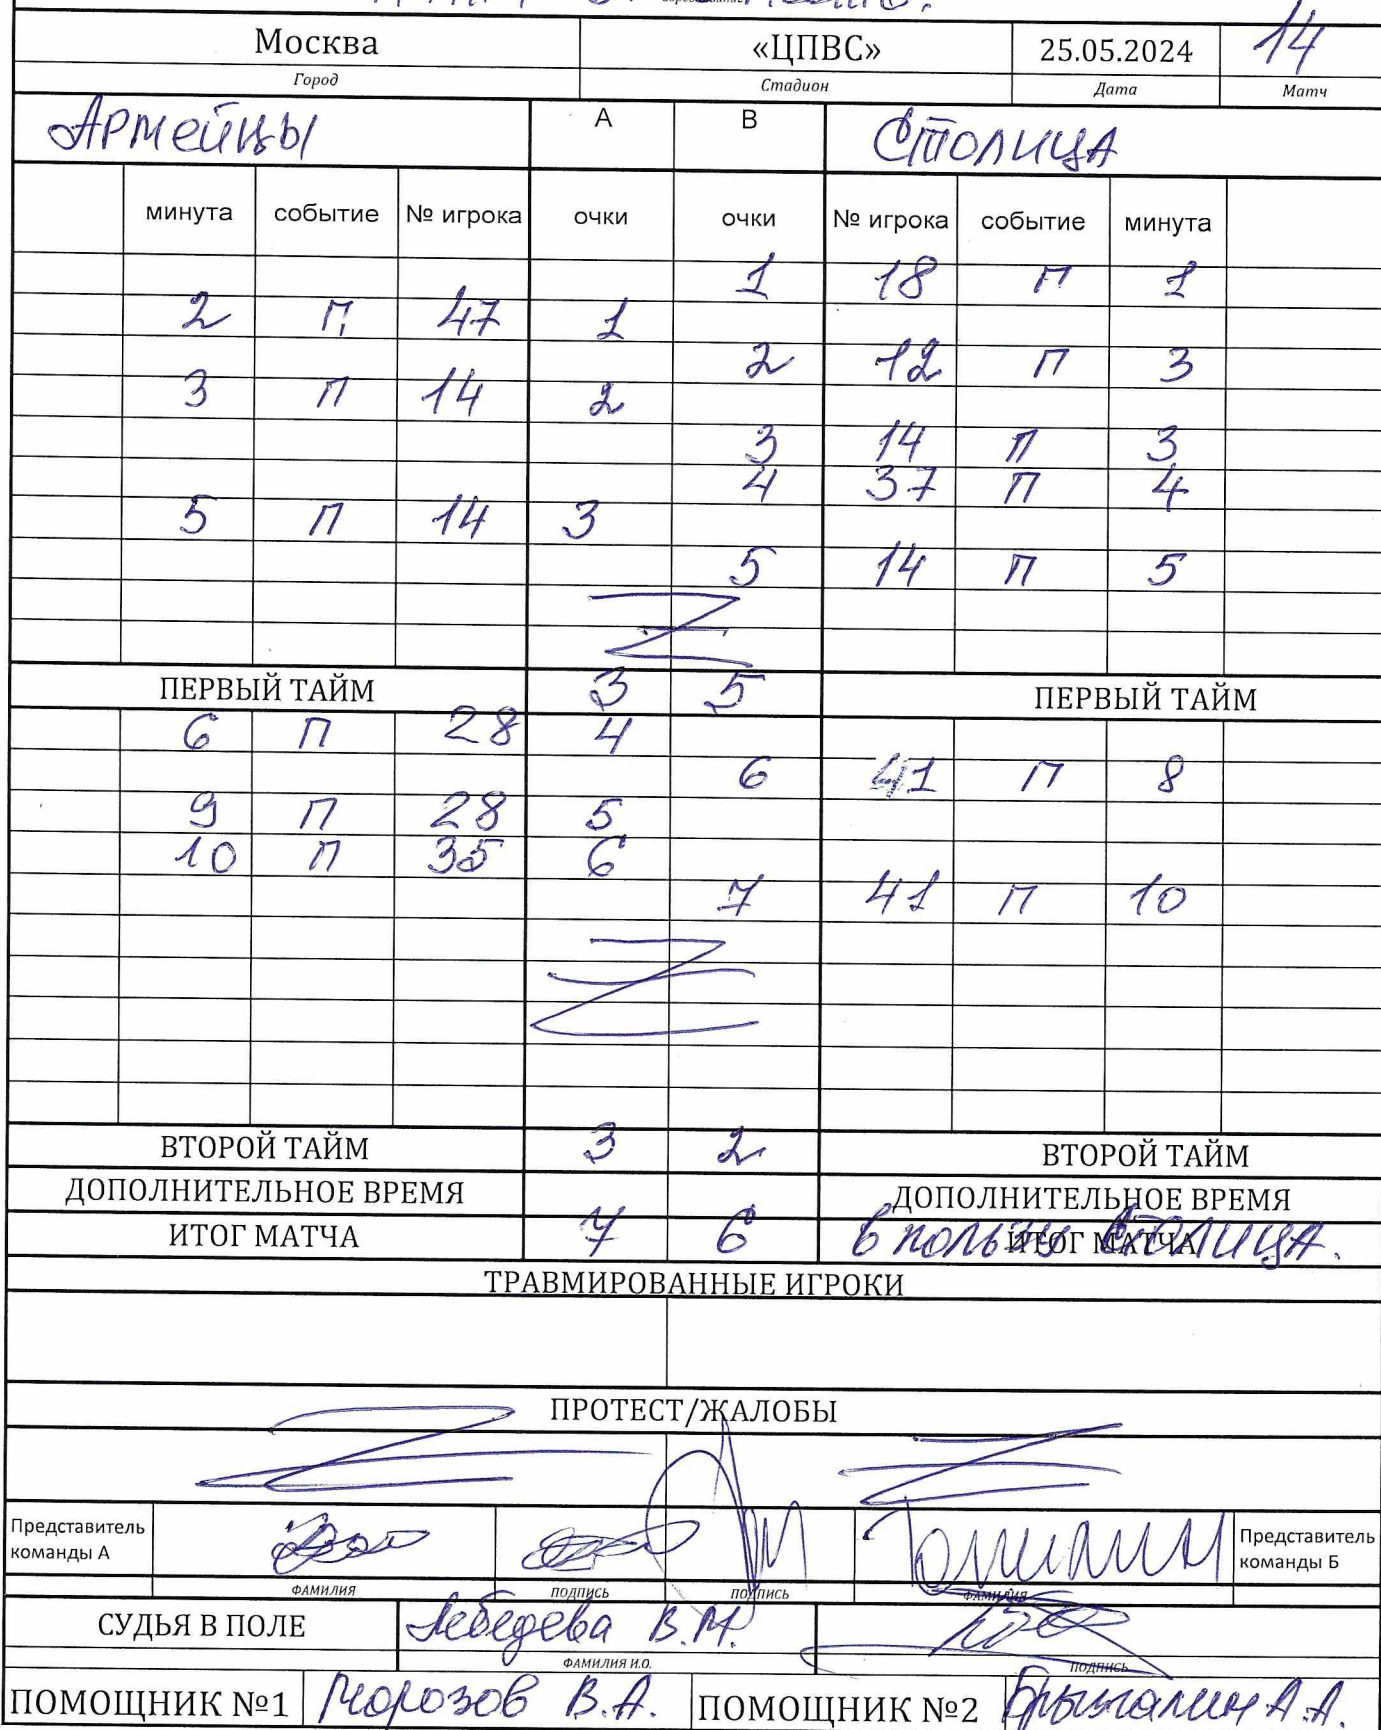 Москва «ЦПВС» 25.05.2024 14
Город Стадион Дата Матч
Армейцы А В Столица
минута событие № игрока очки очки № игрока событие минута
1 18 п 1
2 п 47 1
2 12 п 3
3 п 14 2
3 14 п 3
4 37 п 4
5 п 14 3
5 14 п 5
ПЕРВЫЙ ТАЙМ 3 5 ПЕРВЫЙ ТАЙМ
6 п 28 4
6 41 п 8
9 п 28 5
10 п 35 6
7 41 п 10
ВТОРОЙ ТАЙМ 3 2 ВТОРОЙ ТАЙМ
ДОПОЛНИТЕЛЬНОЕ ВРЕМЯ ДОПОЛНИТЕЛЬНОЕ ВРЕМЯ
ИТОГ МАТЧА 7 6 ИТОГ МАТЧА
в пользу Столица.
ТРАВМИРОВАННЫЕ ИГРОКИ
ПРОТЕСТ/ЖАЛОБЫ
Представитель команды А
Представитель команды Б
ФАМИЛИЯ ПОДПИСЬ ПОДПИСЬ ФАМИЛИЯ
СУДЬЯ В ПОЛЕ Лебедева В.М.
ФАМИЛИЯ И.О. ПОДПИСЬ
ПОМОЩНИК №1 Морозов В.А. ПОМОЩНИК №2 Брызгалин А.А.